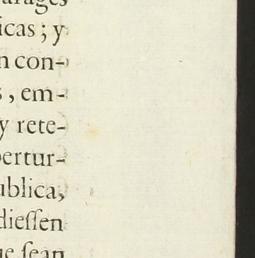 icas; y
n con-
s, em-
y rete-
ertur-
ublica,
dieſſen
ue ſean